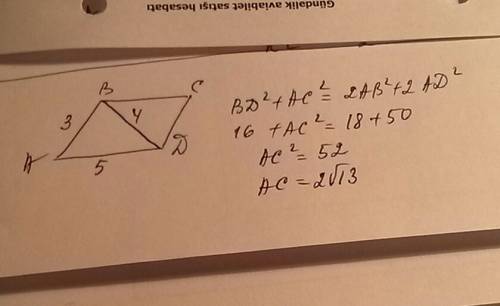 Gündəlik aviabilet satışı hesabatı
B C
3 4
A 5 D
BD² + AC² = 2AB² + 2AD²
16 + AC² = 18 + 50
AC² = 52
AC = 2√13